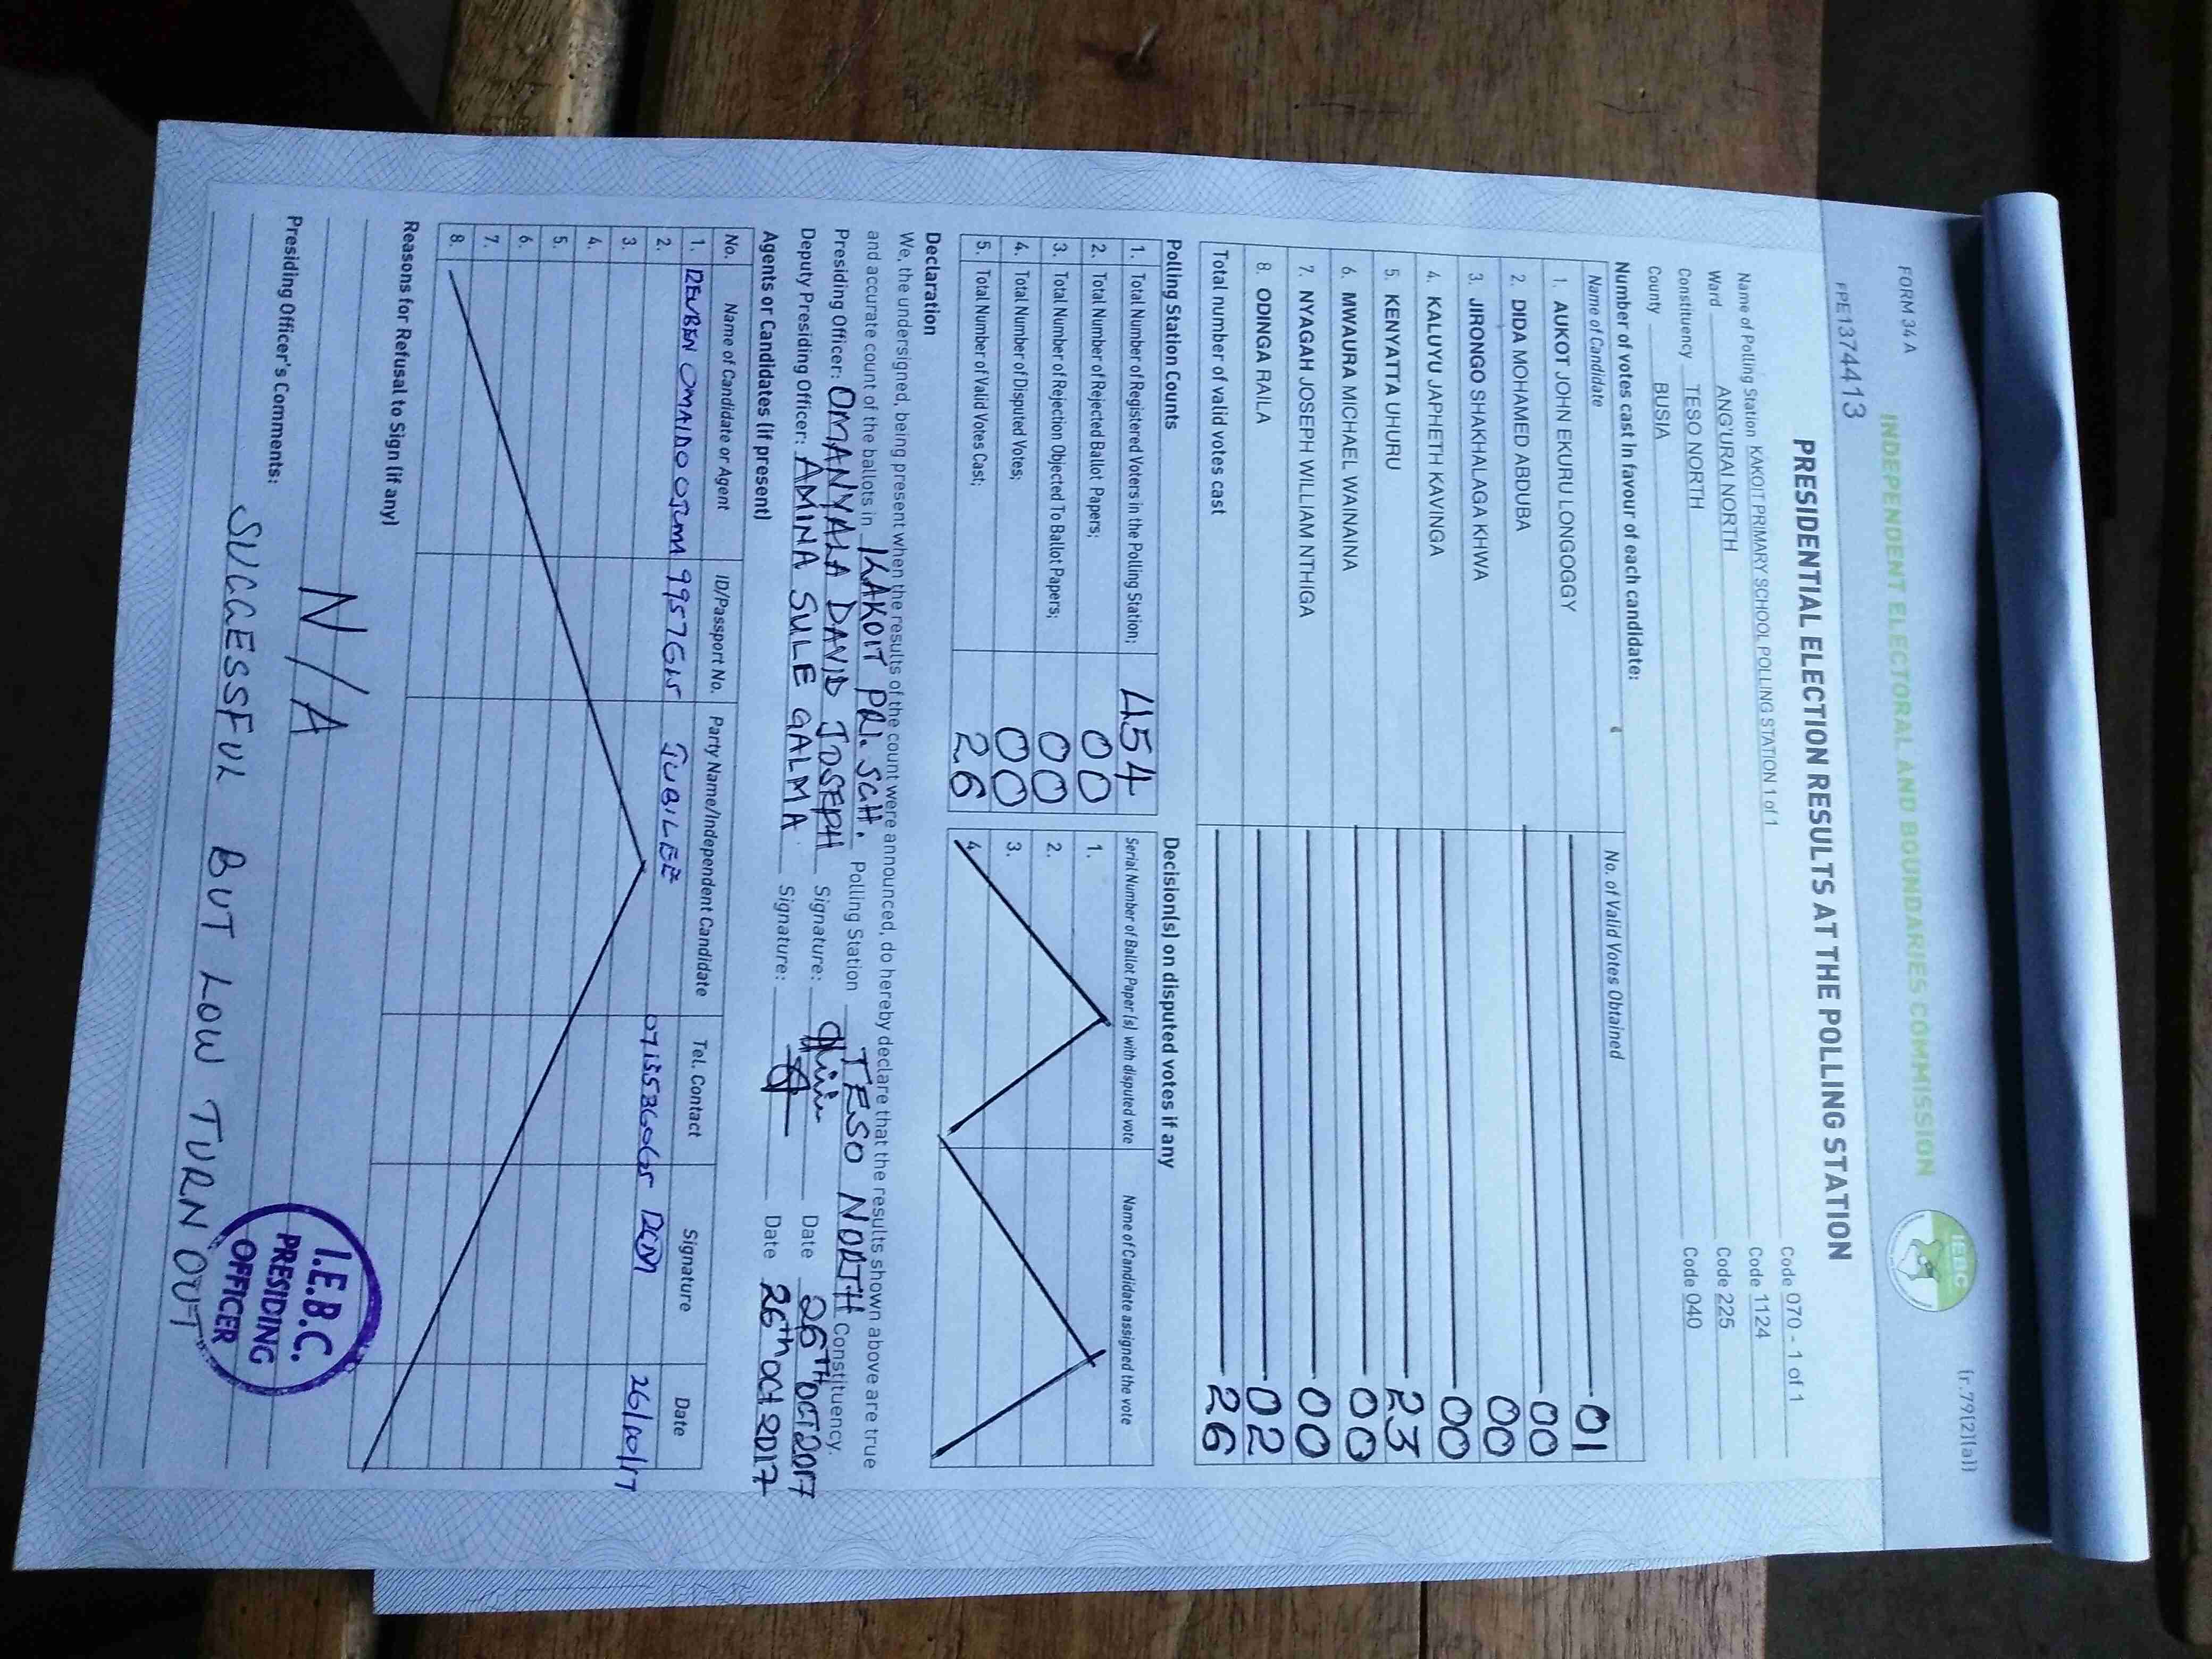 FORM 34 A
(r.79(2)(a))
INDEPENDENT ELECTORAL AND BOUNDARIES COMMISSION
IEBC
PE1374413
PRESIDENTIAL ELECTION RESULTS AT THE POLLING STATION
Name of Polling Station KAKOIT PRIMARY SCHOOL POLLING STATION 1 of 1 Code 070 - 1 of 1
Ward ANG'URAI NORTH Code 1124
Constituency TESO NORTH Code 225
County BUSIA Code 040
Number of votes cast in favour of each candidate:
Name of Candidate No. of Valid Votes Obtained
1. AUKOT JOHN EKURU LONGOGGY 01
2. DIDA MOHAMED ABDUBA 00
3. JIRONGO SHAKHALAGA KHWA 00
4. KALUYU JAPHETH KAVINGA 00
5. KENYATTA UHURU 23
6. MWAURA MICHAEL WAINAINA 00
7. NYAGAH JOSEPH WILLIAM NTHIGA 00
8. ODINGA RAILA 02
Total number of valid votes cast 26
Polling Station Counts
1. Total Number of Registered Voters in the Polling Station; 454
2. Total Number of Rejected Ballot Papers; 00
3. Total Number of Rejection Objected To Ballot Papers; 00
4. Total Number of Disputed Votes; 00
5. Total Number of Valid Votes Cast; 26
Decision(s) on disputed votes if any
Serial Number of Ballot Paper(s) with disputed vote Name of Candidate assigned the vote
1.
2.
3.
4.
Declaration
We, the undersigned, being present when the results of the count were announced, do hereby declare that the results shown above are true
and accurate count of the ballots in KAKOIT PRI. SCH. Polling Station TESO NORTH Constituency.
Presiding Officer: OMANYALA DAVID JOSEPH Signature: Date 26TH OCT 2017
Deputy Presiding Officer: AMINA SULE GALMA Signature: Date 26th OCT 2017
Agents or Candidates (if present)
No. Name of Candidate or Agent ID/Passport No. Party Name/Independent Candidate Tel. Contact Signature Date
1. REUBEN OMAIDO 9957615 JUBILEE 0713536065 26/10/17
2.
3.
4.
5.
6.
7.
8.
Reasons for Refusal to Sign (if any)
N/A
Presiding Officer's Comments:
SUCCESSFUL BUT LOW TURN OUT
I.E.B.C.
PRESIDING
OFFICER